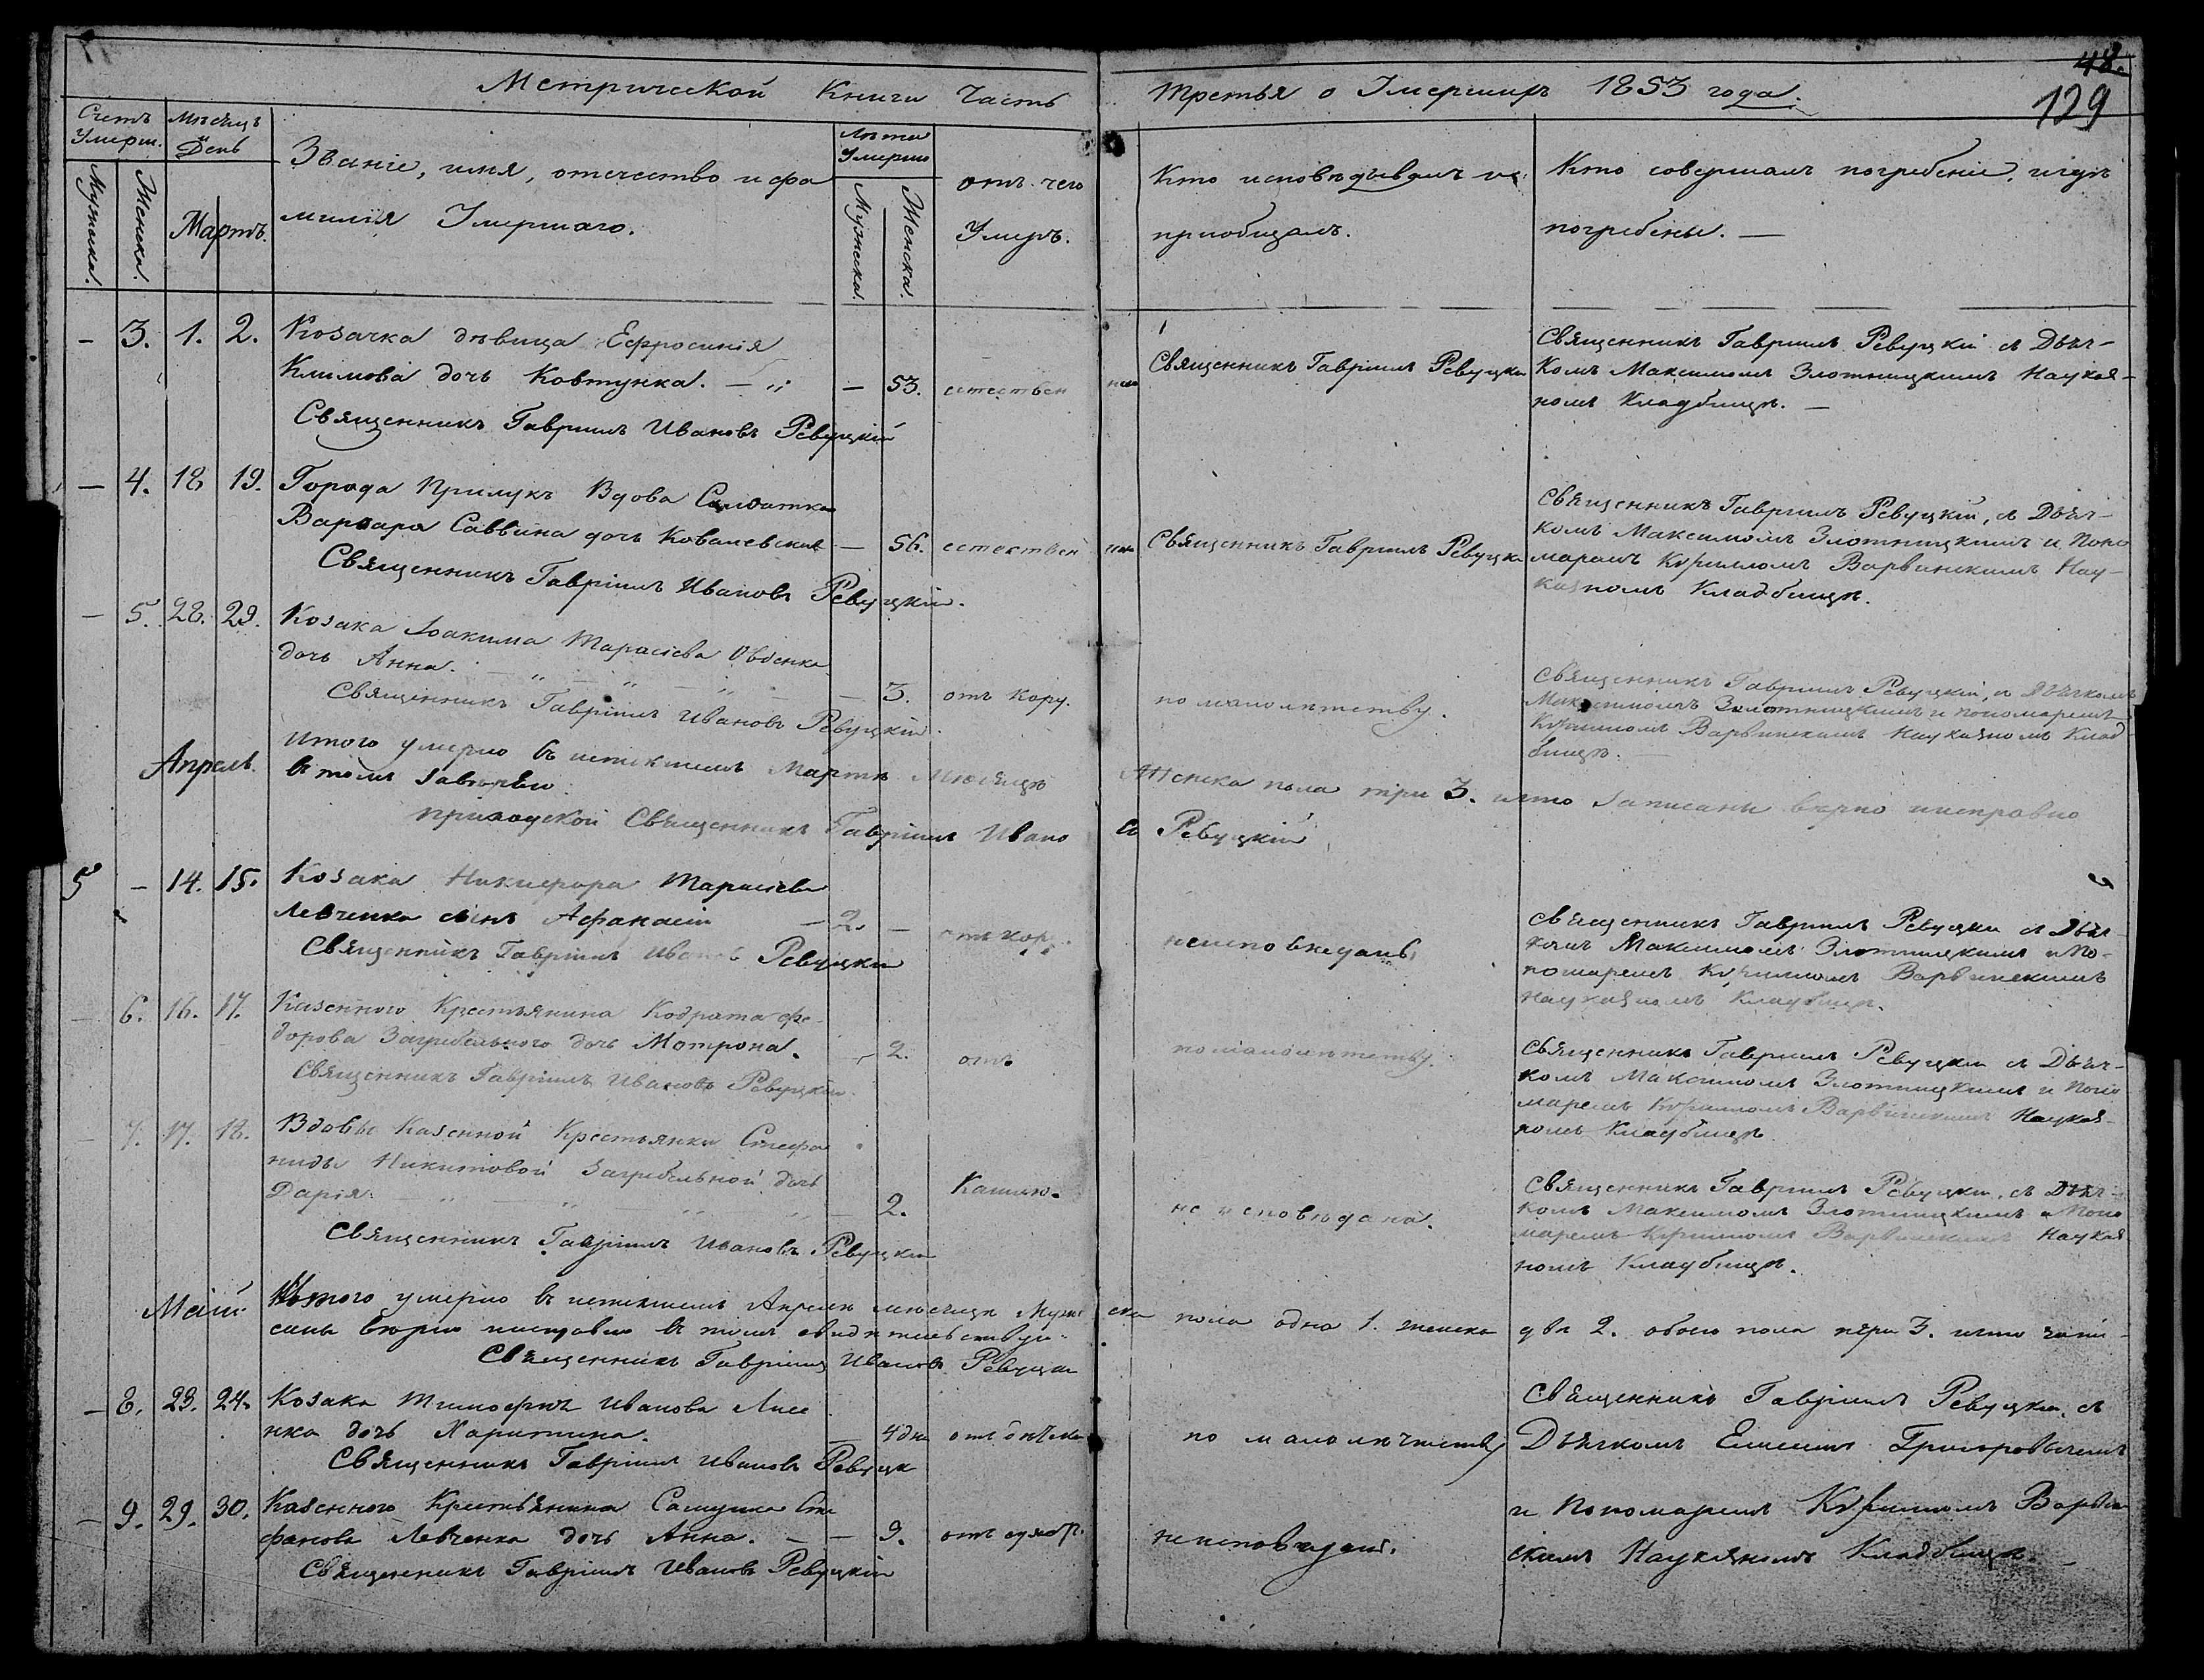 48.
129
Метрической Книги Часть третья о Умершихъ 1853 года.
Счетъ Умерш.
Мѣсяцъ и День
Званіе, имя, отечество и фа
милія Умершаго.
Лѣта Умерш
отъ чего
Умеръ.
Кто исповѣдывалъ и
пріобщалъ.
Кто совершалъ погребеніе, и гдѣ
погребены. —
Мужеска. Женска. Мартъ.
Мужеска. Женска.
— 3. 1. 2. Козачка дѣвица Ефросинія
Климова дочь Ковтунка. — — 53. естествен
Священникъ Гавріилъ Ивановъ Ревуцкій
Священникъ Гавріилъ Ревуцки
Священникъ Гавріилъ Ревуцкій съ Дьяч-
комъ Максимомъ Злотницкимъ
номъ Кладбищѣ. —
— 4. 18 19. Города Прилукъ Вдова Салдатка
Варвара Саввина дочь Ковалевская — 56. естествен
Священникъ Гавріилъ Ивановъ Ревуцкій.
Священникъ Гавріилъ Ревуцки
Священникъ Гавріилъ Ревуцкій, съ Дьяч-
комъ Максимомъ Злотницкимъ и Поно
маремъ Кѵрилломъ Варвинскимъ
Кладбищѣ.
— 5. 28. 29. Козака Іоакима Тарасіева
дочь Анна. — 3. отъ кору.
Священникъ Гавріилъ Ивановъ Ревуцкій.
по малолѣтству.
Священникъ Гавріилъ Ревуцкій, съ Дьячкомъ
Максимомъ Злотницкимъ и пономаремъ
Кѵрилломъ Варвинскимъ Клад
бищѣ.
Апрель.
Итого умерло въ истекшемъ Мартѣ Мѣсяцѣ Женска пола три 3. что записаны вѣрно исправно
въ томъ
приходской Священникъ Гавріилъ Ивановъ Ревуцкій
5 — 14. 15. Козака Никифора Тарасіева
Левченка сынъ Афанасій — 2. — отъ кор.
Священникъ Гавріилъ Ивановъ Ревуцкій
неисповѣданъ
Священникъ Гавріилъ Ревуцки съ Дьяч
комъ Максимомъ Злотницкимъ и По-
номаремъ Кѵрилломъ Варвинскимъ
Кладбищѣ.
— 6. 16. 17. Казенного Крестьянина Кодрата Фе
дорова Загребельного дочь Мотрона. — 2. отъ
Священникъ Гавріилъ Ивановъ Ревуцкій.
по малолѣтству.
Священникъ Гавріилъ Ревуцки съ Дьяч-
комъ Максимомъ Злотницкимъ и Поно
маремъ Кѵрилломъ Варвинскимъ
номъ Кладбищѣ.
— 7. 17. 18. Вдовы Казенной Крестьянки Стефа
ниды Никитовой Загребельной дочь
Дарія. — 2. Кашлю.
Священникъ Гавріилъ Ивановъ Ревуцкій
не исповѣдана.
Священникъ Гавріилъ Ревуцки, съ Дьяч-
комъ Максимомъ Злотницкимъ и Поно
маремъ Кѵрилломъ Варвинскимъ
номъ Кладбищѣ.
Маій.
Итого умерло въ истекшемъ Апрелѣ мѣсяцѣ Мужеска пола одна 1. женска двѣ 2. обоего пола три 3. что запи-
саны вѣрно исправно въ томъ свидѣтельствую
Священникъ Гавріилъ Ивановъ Ревуцки
— 8. 23. 24. Козака Тимофія Иванова Лисе
нка дочь Харитина. — 4 дн
Священникъ Гавріилъ Ивановъ Ревуцк
по малолѣтству
Священникъ Гавріилъ Ревуцки, съ
Дьячкомъ Григоровичемъ
— 9. 29. 30. Казенного Крестьянина Самуила Сте
фанова Левченка дочь Анна. — — 9.
Священникъ Гавріилъ Ивановъ Ревуцкій
и Пономаремъ Кѵрилломъ Варвин
скимъ Кладбищѣ. —